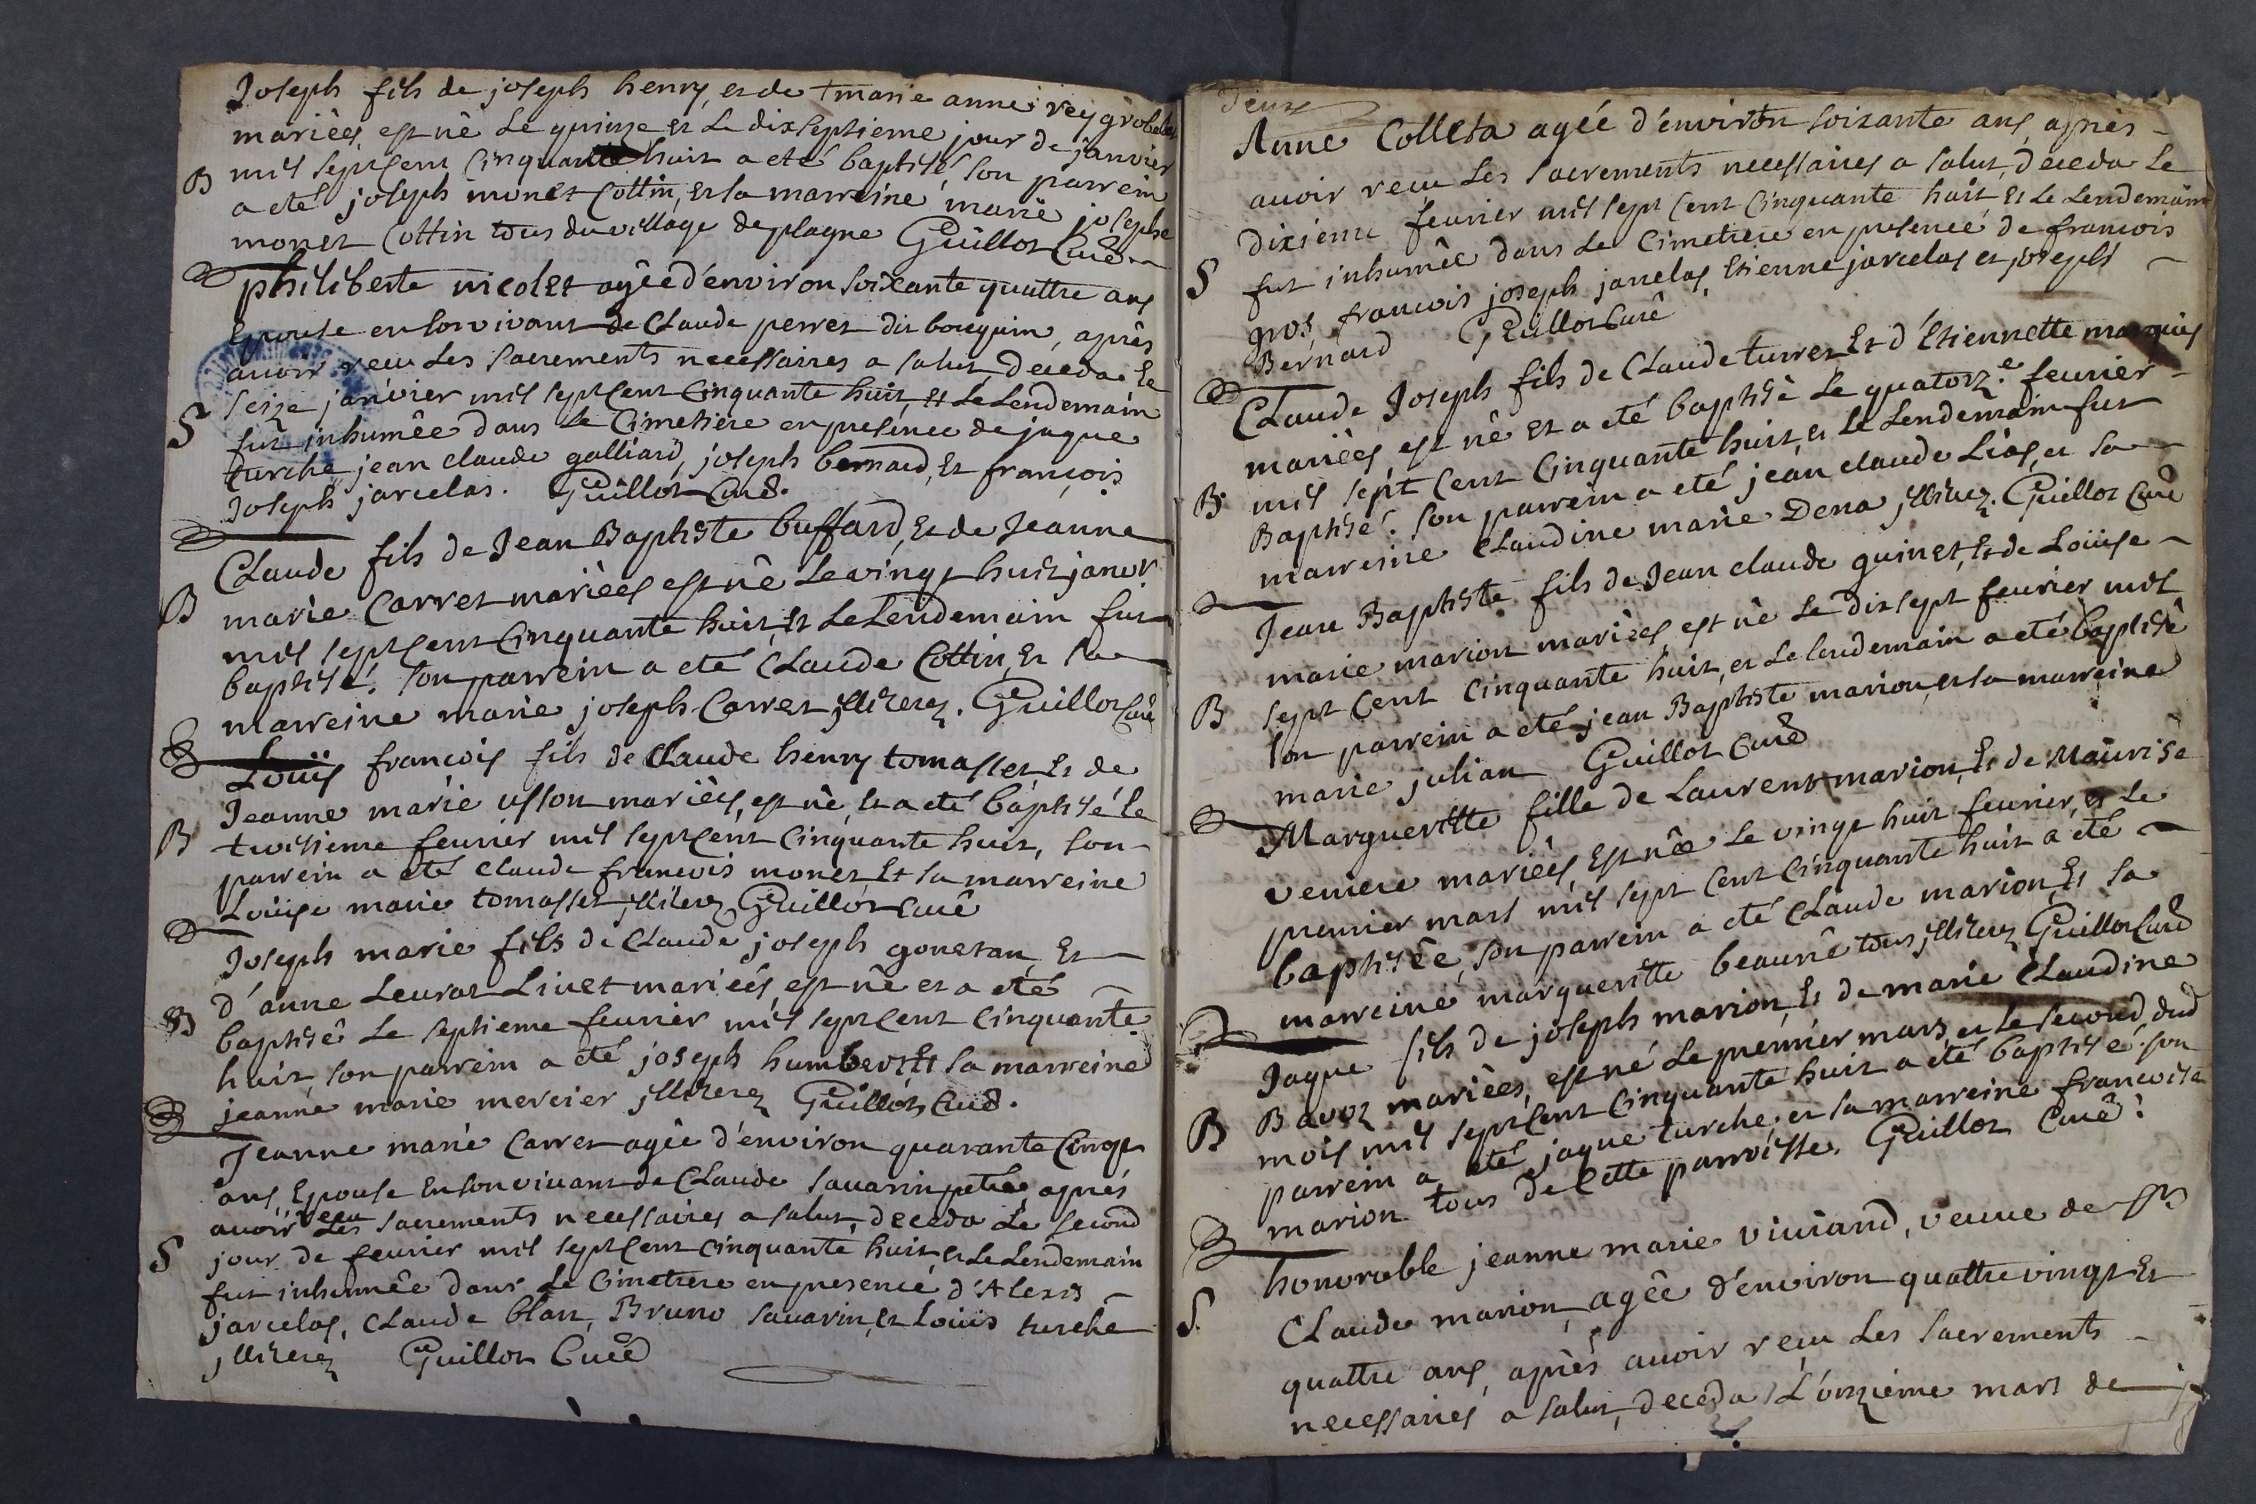 Joseph fils de joseph henry, et de marie anne reygrobellet
mariées, est né Le quinze et Le dixseptieme jour de janvier
B mil sept Cent Cinquante huit a eté baptisé, son parrein
a eté joseph monet Cottin, et sa marreine marie josephe
monet Cottin tous du village de plagne Guillot Curé
philiberte nicolet agée d'environ soixante quattre ans
Epouse en son vivant de Claude perret dit bouquin, après
avoir reçu Les Sacrements necessaires a salut, deceda Le
seize janvier mil sept Cent Cinquante huit, et Le Lendemain
S fut inhumée dans Le Cimetiere en presence de jaque
turche, jean claude galliard, joseph bernard, Et françois
Joseph jarcelas. Guillot Curé.
Claude fils de Jean Baptiste buffard, Et de Jeanne
B marie Carret mariées est né Le vingt huit janvr
mil sept Cent Cinquante huit, Et Le Lendemain fut
baptisé. son parrein a eté Claude Cottin, Et sa
marreine marie joseph Carret jllirerez. Guillot Curé
Louis françois fils de Claude henry tomasset, Et de
Jeanne marie usson mariées, est né, Et a eté baptisé Le
B troisieme fevrier mil sept Cent Cinquante huit, son
parrein a eté Claude françois monet Et sa marreine
Louise marie tomasset jllirerez Guillot Curé
Joseph marie fils de Claude joseph gonetan, Et
d'anne Levrat Livet mariées, est né et a eté
B baptisé Le septieme fevrier mil sept Cent Cinquante
huit, son parrein a eté joseph humbert Et sa marreine
jeanne marie mercier jllirerez Guillot Curé.
Jeanne marie Carret agée d'environ quarante Cinq
ans, Epouse En son vivant de Claude savarin, après
avoir reçu Les sacrements necessaires a salut, deceda Le second
S jour de fevrier mil sept Cent Cinquante huit et Le Lendemain
fut inhumée dans Le Cimetiere en presence d'Alexis
jarcelas, Claude blan, Bruno savarin, et Louis turche
jllirerez Guillot Curé
deux
Anne Colleta agée d'environ soixante ans, après
avoir reçu Les sacrements necessaires a salut, deceda Le
dixieme fevrier mil sept Cent Cinquante huit Et Le Lendemain
S fut inhumée dans Le Cimetiere en presence de françois
gros, françois joseph jarcelas, Etienne jarcelas et joseph
Bernard Guillot Curé
Claude Joseph fils de Claude turrez Et d'Etiennette marquis
mariées, est né Et a eté baptisé Le quatorze fevrier
B. mil sept Cent Cinquante huit, et Le Lendemain fut
Baptisé. son parrein a eté jean claude Lias, et sa
marreine Claudine marie Dena jllirez. Guillot Curé
Jean Baptiste fils de Jean claude guinet, Et de Louise
marie marion mariées, est né Le dix sept fevrier mil
B sept Cent Cinquante huit, et Le lendemain a eté baptisé
son parrein a eté jean Baptiste marion, et sa marreine
marie julian Guillot Curé
Marguerite fille de Laurent marion, Et de Maurise
veniere mariées, Est née Le vingt huit fevrier, et Le
premier mars mil sept Cent Cinquante huit a eté
baptisée, son parrein a eté Claude marion, Et sa
marreine marguerite beauné tous jllirez Guillot Curé
Jaque fils de joseph marion, Et de marie Claudine
B Bavoz mariées, est né Le premier mars, et Le second dud
mois mil sept Cent Cinquante huit a eté baptisé. son
parrein a eté jaque turche, et sa marreine françoise
marion tous de Cette parroisse. Guillot Curé.
honorable jeanne marie viviand, veuve de
S. Claude marion, agée d'environ quattre vingt Et
quattre ans, après avoir reçu Les sacrements
necessaires a salut, deceda L'onzieme mars de